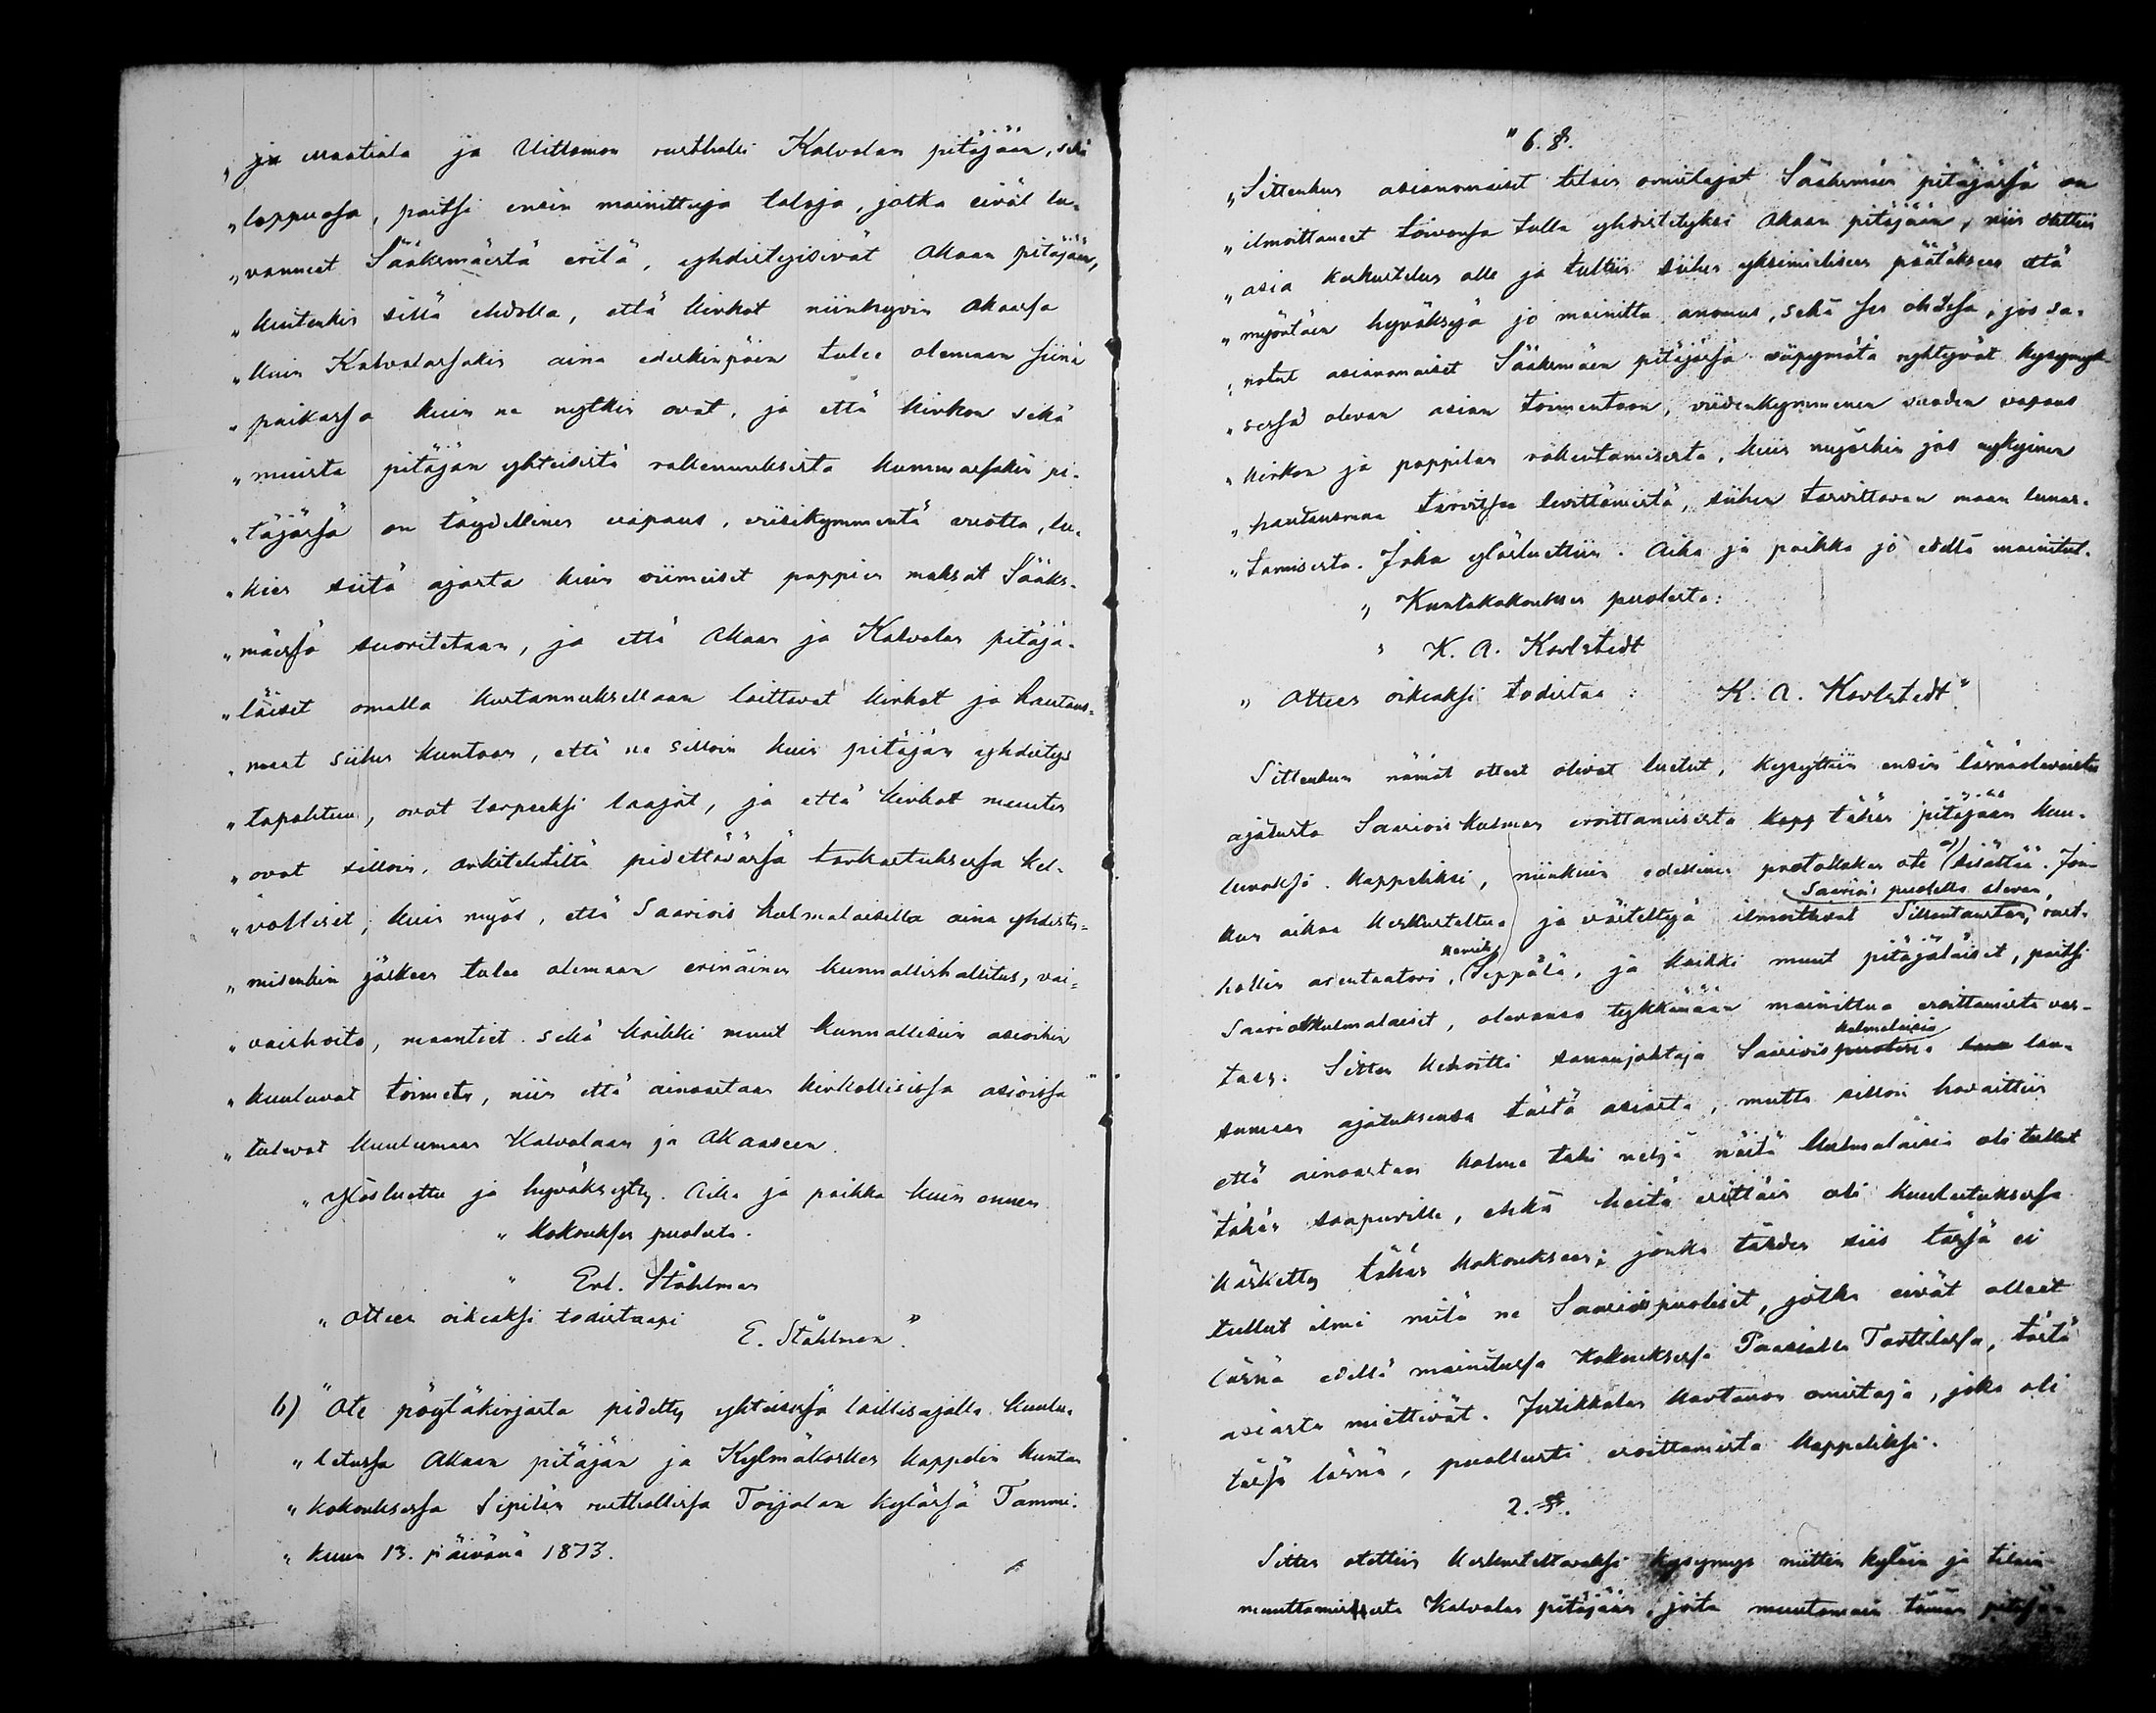 „ja Maatiala ja Uittamon rusthalli Kalvolan pitäjään, sekä
„loppuosa, paitsi ensin mainittuja taloja, jotka eivät lu-
„vanneet Sääksmäestä eritä, yhdistyisivät Akaan pitäjään,
„kuitenkin sillä ehdolla, että kirkot niinhyvin Akaassa
„kuin Kalvolassakin aina edeskinpäin tulee olemaan siinä
„paikassa kuin ne nytkin ovat, ja että kirkon sekä
„muista pitäjän yhteisistä rakennuksista kummassakin pi-
„täjässä on täydellinen vapaus, viisikymmentä vuotta, lu-
„kien siitä ajasta kuin viimeiset pappien maksat Sääks-
„mäessä suoritetaan, ja että Akaan ja Kalvolan pitäjä-
„läiset omalla kustannuksellaan laittavat kirkot ja hautaus-
„maat siihen kuntoon, että ne silloin kuin pitäjän yhdistys
„tapahtuu, ovat tarpeeksi laajat, ja että kirkot muuten
„ovat silloin, arkitektiltä pidettävässä tarkastuksessa kel-
„volliset; kuin myös, että Saarioiskulmalaisilla aina yhdisty-
„misenkin jälkeen tulee olemaan erinäinen kunnallishallitus, vai-
„vaishoito, maantiet sekä kaikki muut kunnallisiin asioihin
„kuuluvat toimet, niin että ainoastaan kirkollisissa asioissa
„tulevat kuulumaan Kalvolaan ja Akaaseen.
„Ylösluettu ja hyväksytty. Aika ja paikka kuin ennen
„Kokouksen puolesta.
„ Enl. Ståhlman
„Otteen oikeaksi todistaapi
E. Ståhlman”.
b) „Ote pöytäkirjasta pidetty yhteisessä laillisajalla kuulu-
„tetussa Akaan pitäjän ja Kylmäkosken kappelin kuntan
„kokouksessa Sipilän rusthollissa Toijalan kylässä Tammi-
„kuun 13. päivänä 1873.
„6. §.
„Sittenkun asianomaiset tilain omistajat Sääksmäen pitäjässä on
„ilmoittaneet toivonsa tulla yhdistetyksi Akaan pitäjään, niin otettiin
„asia keskustelun alle ja tultiin siihen yksimieliseen päätökseen että
„myöntäen hyväksyä jo mainittu anomus, sekä sen ohdessa, jos sa-
„notut asianomaiset Sääksmäen pitäjässä viipymätä ryhtyvät kysymyk-
„sessä olevan asian toimentoon, viidenkymmenen vuoden vapaus
„kirkon ja pappilan rakentamisesta, kuin myöskin jos nykyinen
„hautausmaa tarvitsee levittämistä, siihen tarvittavan maan lunas-
„tamisesta. Joka ylösluettiin. Aika ja paikka jo edellä mainitut.
„ Kuntakokouksen puolesta:
„ K. A. Karlstedt
„ Otteen oikeaksi todistaa: K. A. Karlstedt”
Sittenkun nämät otteet olivat luetut, kysyttiin ensin läsnäolevaisten
ajatusta Saarioiskulman eroittamisesta kapp tähän pitäjään kuu-
luvaksi kappeliksi, niinkuin edellinen protokollan ote a) sisältää. Jon-
kun aikaa keskusteltua ja väiteltyä ilmoittivat Saarioi puolella olevan, Sillantaustan, rust-
hollin arentaatori, Henrik Seppälä, ja kaikki muut pitäjäläiset, paitsi
Saarioiskulmalaiset, olevansa tykkänään mainittua eroittamista vas-
taan. Sitten kehoitti sananjohtaja Saarioispuolisia kulmalaisia lau-
sumaan ajatuksensa tästä asiasta, mutta silloin havaittiin
että ainoastaan kolme tahi neljä näitä kulmalaisia oli tullut
tähän saapuville, ehkä heitä erittäin oli kuulutuksessa
käsketty tähän kokoukseen; jonka tähden siis tässä ei
tullut ilmi mitä ne Saarioispuoliset, jotka eivät olleet
läsnä edellä mainitussa kokouksessa Paasialla Tarttilassa, tästä
asiasta miettivät. Jutikkalan kartanon omistaja, joka oli
tässä läsnä, puollusti eroittamista kappeliksi.
2. §.
Sitten otettiin keskusteltavaksi kysymys niitten kyläin ja tilain
muuttamisesta Kalvolan pitäjään, joita muutamain tämän pitäjän